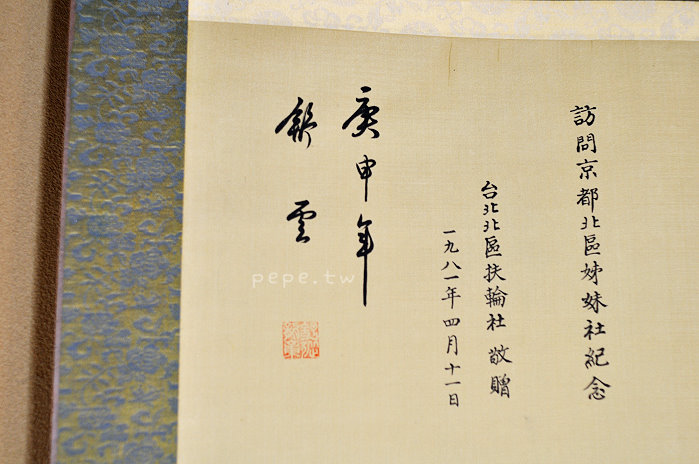 訪問京都北區姊妹社紀念
台北北區扶輪社 敬贈
一九八一年四月十一日
庚申年
雲
pepe.tw